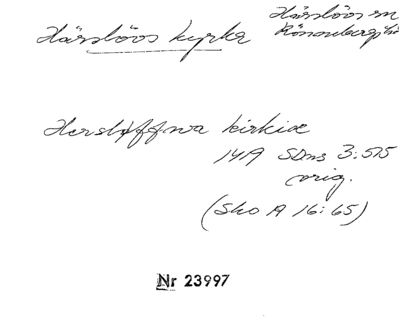 Härslövs kyrka
Härslövs sn
Rönnebergs hd
Herslyffwa kirkiæ
1419 SDns 3:515
orig.
(Sko A 16:65)
Nr 23997